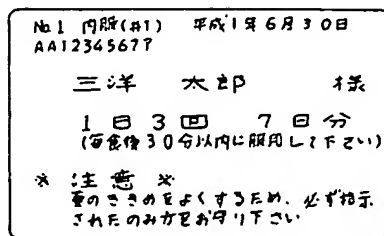 No.1 内服(#1) 平成1年6月30日
AA1234567?
三洋 太郎 様
1日3回 7日分
(毎食後30分以内に服用して下さい)
※ 注意 ※
薬のききめをよくするため、必ず指示
されたのみ方をお守り下さい